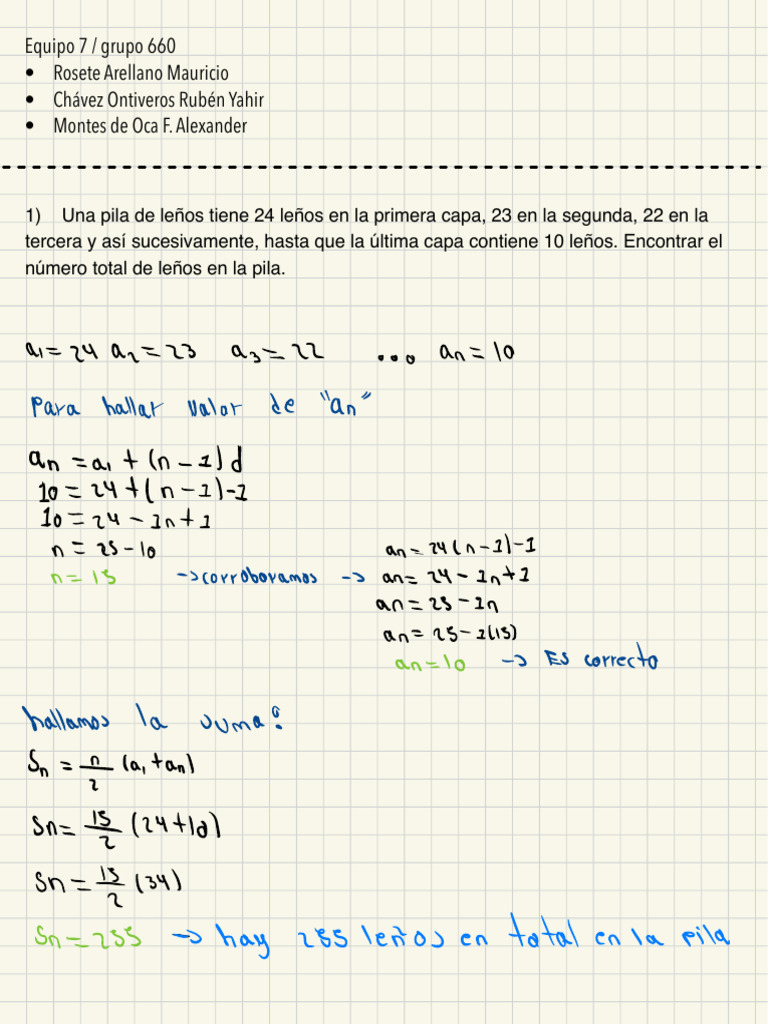 Equipo 7 / grupo 660
• Rosete Arellano Mauricio
• Chávez Ontiveros Rubén Yahir
• Montes de Oca F. Alexander
1) Una pila de leños tiene 24 leños en la primera capa, 23 en la segunda, 22 en la
tercera y así sucesivamente, hasta que la última capa contiene 10 leños. Encontrar el
número total de leños en la pila.
a1 = 24 a2 = 23 a3 = 22 ... an = 10
Para hallar valor de "an"
an = a1 + (n - 1) d
10 = 24 + (n - 1) -1
10 = 24 - 1n + 1
n = 25 - 10
n = 15 -> corroboramos ->
an = 24 (n - 1) - 1
an = 24 - 1n + 1
an = 25 - 1n
an = 25 - 1(15)
an = 10 -> Es correcto
hallamos la suma:
Sn = n/2 (a1 + an)
Sn = 15/2 (24 + 10)
Sn = 15/2 (34)
Sn = 255 -> hay 255 leños en total en la pila